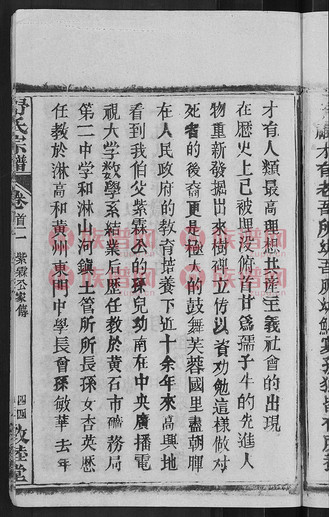 才有人類最高理想共產主義社會的出現
在歷史上已被埋没俯首甘爲孺子牛的先進人
物重新發掘出來樹碑立傳以資劝勉這樣做对
死者的後裔更是極大的鼓舞芙蓉國里盡朝暉
在人民政府的教育培養下近十余年來高興地
看到我伯父紫霖公的孫兒幼南在中央廣播電
視大学数學系結業歷任教於黄石市礦務局
第一二中学和淋山河鎮土管所所長孫女杏英歷
任教於淋高和黄州東門中學長曾孫敏華去年
氏宗譜
卷首二
紫霖公家傳
四四
敦睦堂
族譜网